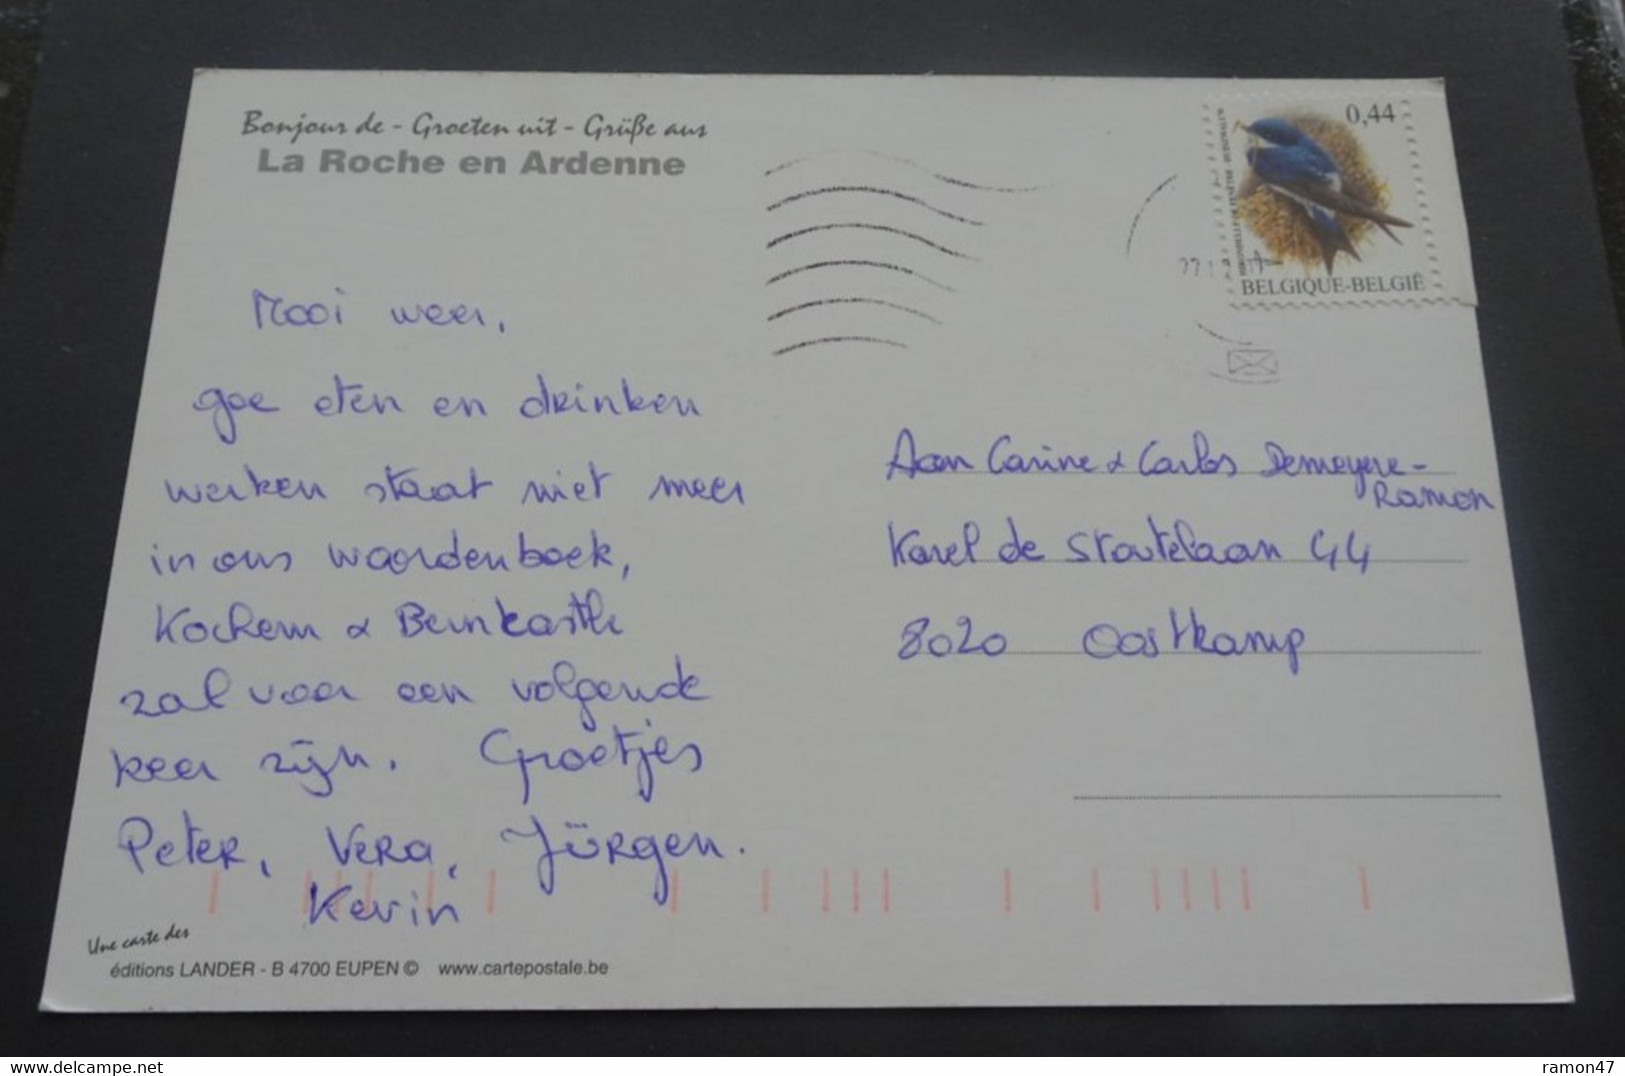 Bonjour de - Groeten uit - Grüße aus
La Roche en Ardenne
0,44
HIRONDELLE DE FENÊTRE HUISZWALUW
BELGIQUE-BELGIË
Mooi weer,
goe eten en drinken
werken staat niet meer
in ons woordenboek,
Kochem & Bernkastle
zal voor een volgende
keer zijn. Groetjes
Peter, Vera, Jürgen.
Kevin
Aan Carine & Carlos Demeyere-
Ramon
Karel de Stoutelaan 44
8020 Oostkamp
Une carte des
éditions LANDER - B 4700 EUPEN © www.cartepostale.be
delcampe.net
ramon47